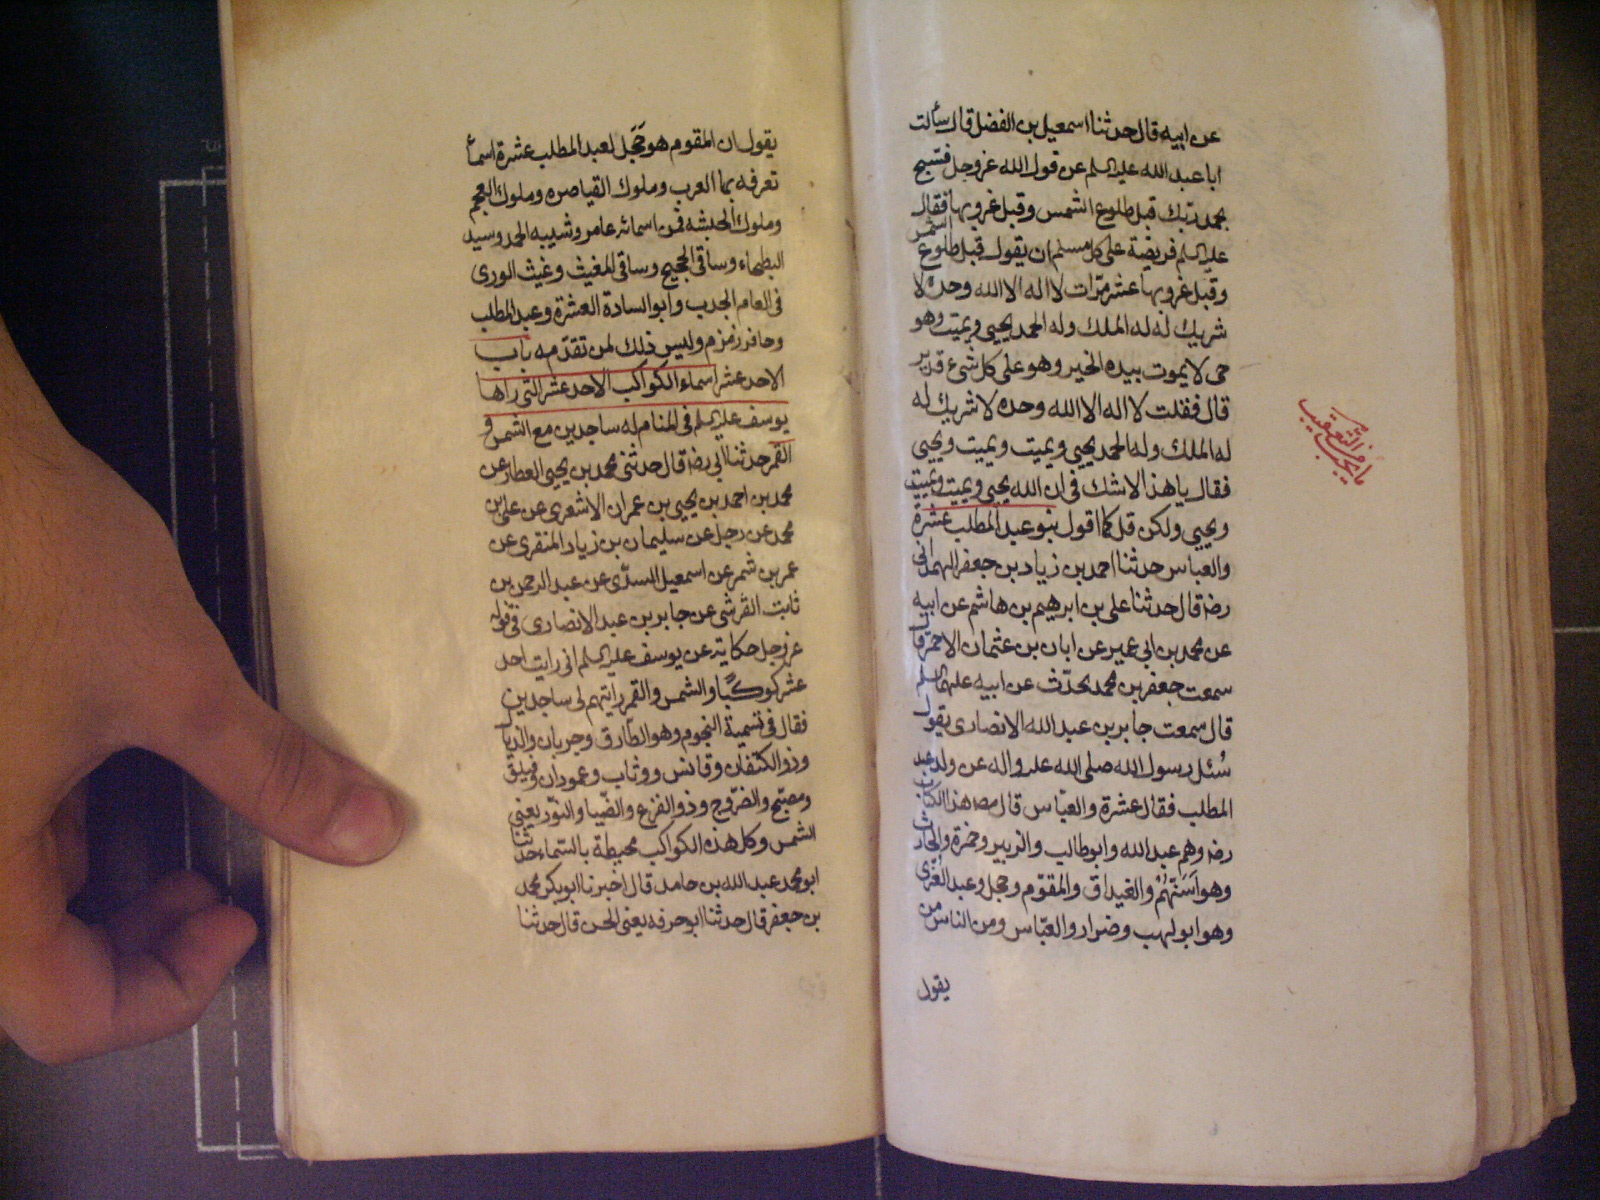 عن ابيه قال حدثنا اسمعيل بن الفضل قال سألت
ابا عبد الله عليه السلم عن قول الله عز وجل فسبح
بحمد ربك قبل طلوع الشمس وقبل غروبها فقال
عليه السلم فريضة على كل مسلم ان يقول قبل طلوع الشمس
وقبل غروبها عشر مرّات لا اله الا الله وحده لا
شريك له له الملك وله الحمد يحيى ويميت وهو
حى لا يموت بيده الخير وهو على كل شىء قدير
قال فقلت لا اله الا الله وحده لا شريك له
له الملك وله الحمد يحيى ويميت ويميت ويحيى
فقال يا هذا لاشك فى ان الله يحيى ويميت ويميت
ويحيى ولكن قل كما اقول بنو عبد المطلب عشرة
والعباس حدثنا احمد بن زياد بن جعفر الهمدانى
رضه قال حدثنا على بن ابرهيم بن هاشم عن ابيه
عن محمد بن ابى عمير عن ابان بن عثمان الاحمر قال
سمعت جعفر بن محمد يحدّث عن ابيه عليهما السلم
قال سمعت جابر بن عبد الله الانصارى يقول
سُئل رسول الله صلى الله عليه واله عن ولد عبد
المطلب فقال عشرة والعبّاس قال مصنف هذا الكتاب
رضه وهم عبد الله وابو طالب والزبير وحمزة والحارث
وهو اَسَنّهُمْ والغيداق والمقوّم وحجل وعبد العُزّى
وهو ابو لهب وضرار والعبّاس ومن الناس من
يقول
يقول ان المقوم هو حَجَل لعبد المطلب عشرة اسمآ
تعرفه بها العرب وملوك القياصره وملوك العجم
وملوك الحبشه فمن اسمائه عامر وشيبه الحمد وسيد
البطحاء وساقى الحجيج وساقى المغيث وغيث الورى
فى العام الجدب وابو السادة العشرة وعبد المطلب
وحافر زمزم وليس ذلك لمن تقدّمه باب
الاحد عشر اسماء الكواكب الاحد عشر التى راها
يوسف عليه السلم فى المنام له ساجدين مع الشمس و
القمر حدثنا ابى رضه قال حدثنى محمد بن يحيى العطار عن
محمد بن احمد بن يحيى بن عمران الاشعرى عن على بن
محمد عن رجل عن سليمان بن زياد المنقرى عن
عمر بن شمر عن اسمعيل السدّى عن عبد الرحمن بن
ثابت القرشى عن جابر بن عبد الانصارى فى قوله
عز وجل حكاية عن يوسف عليه السلم انى رايت احد
عشر كوكبًا والشمس والقمر رايتهم لى ساجدين
فقال فى تسمية النجوم وهو الطّارق وجربان والذيّال
وذو الكتفان وقابس ووثاب وعمودان وفيلق
ومصبّح والضّروح وذو الفرع والضّيا والنوّر يعنى
الشمس وكل هذه الكواكب محيطة بالسّماء حدثنا
ابو محمد عبد الله بن حامد قال اخبرنا ابو بكر محمد
بن جعفر قال حدثنا ابو حرفه يعنى الحسن قال حدثنا